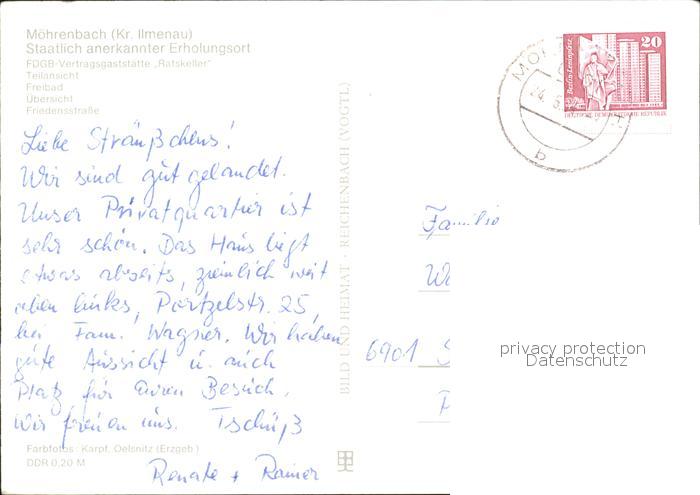 Möhrenbach (Kr. Ilmenau)
Staatlich anerkannter Erholungsort
FDGB-Vertragsgaststätte „Ratskeller"
Teilansicht
Freibad
Übersicht
Friedensstraße
Liebe Sträußchens!
Wir sind gut gelandet.
Unser Privatquartier ist
sehr schön. Das Haus liegt
etwas abseits, ziemlich weit
oben links, Pörtzelstr. 25,
bei Fam. Wagner. Wir haben
gute Aussicht u. auch
Platz für Euren Besuch.
Wir freuen uns. Tschüß
Renate + Rainer
Farbfotos: Karpf, Oelsnitz (Erzgeb.)
DDR 0,20 M
BILD UND HEIMAT · REICHENBACH (VOGTL)
20
Berlin-Leninplatz
DEUTSCHE DEMOKRATISCHE REPUBLIK
b
Familie
6901
privacy protection
Datenschutz